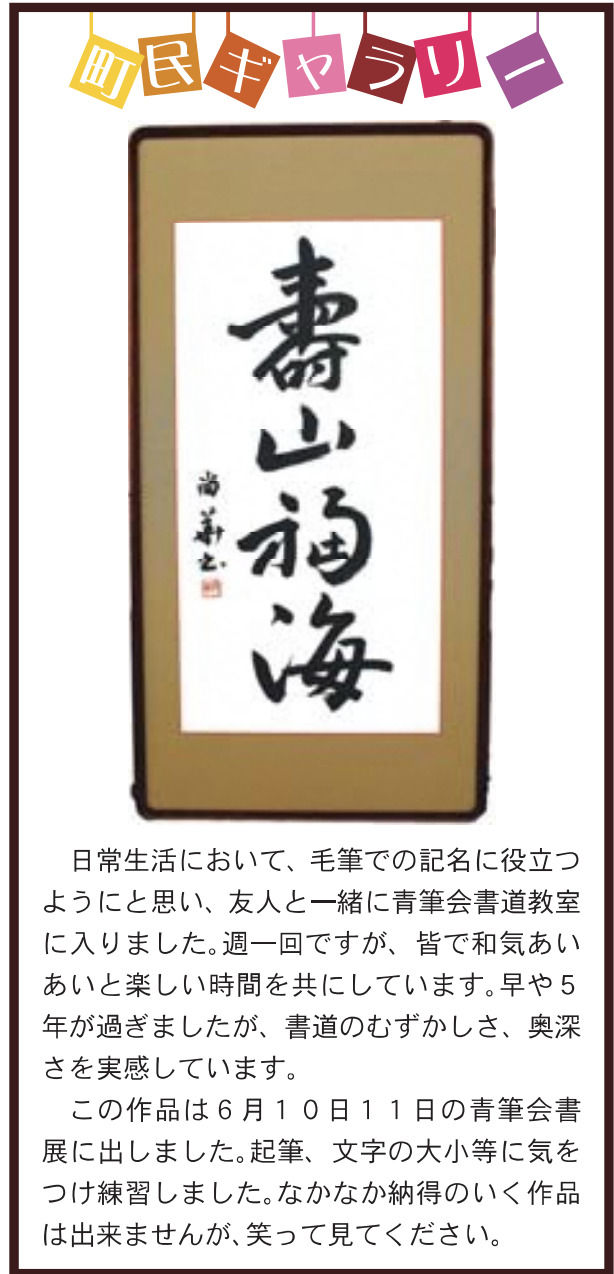 町民ギャラリー
壽山福海
尚華書
日常生活において、毛筆での記名に役立つ
ようにと思い、友人と一緒に青筆会書道教室
に入りました。週一回ですが、皆で和気あい
あいと楽しい時間を共にしています。早や５
年が過ぎましたが、書道のむずかしさ、奥深
さを実感しています。
この作品は６月１０日１１日の青筆会書
展に出しました。起筆、文字の大小等に気を
つけ練習しました。なかなか納得のいく作品
は出来ませんが、笑って見てください。